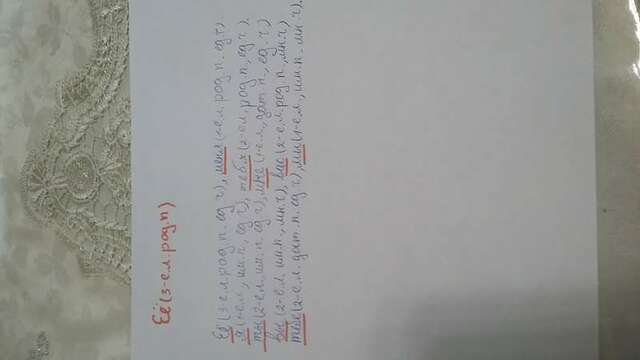 Её (3-е.л. род. п)
Её (3-е.л. род. п. ед. ч), меня (1-е.л. род. п. ед. ч).
я (1-е л., им. п., ед. ч), тебя (2-е л, род. п, ед. ч).
ты (2-е л., им. п. ед. ч), мне (1-е л., дат. п., ед. ч)
вы (2-е л, им. п., мн. ч), вас (2-е л. род п., мн. ч)
тебе (2-е л. дат. п. ед. ч), мы (1-е л., им. п. мн. ч).